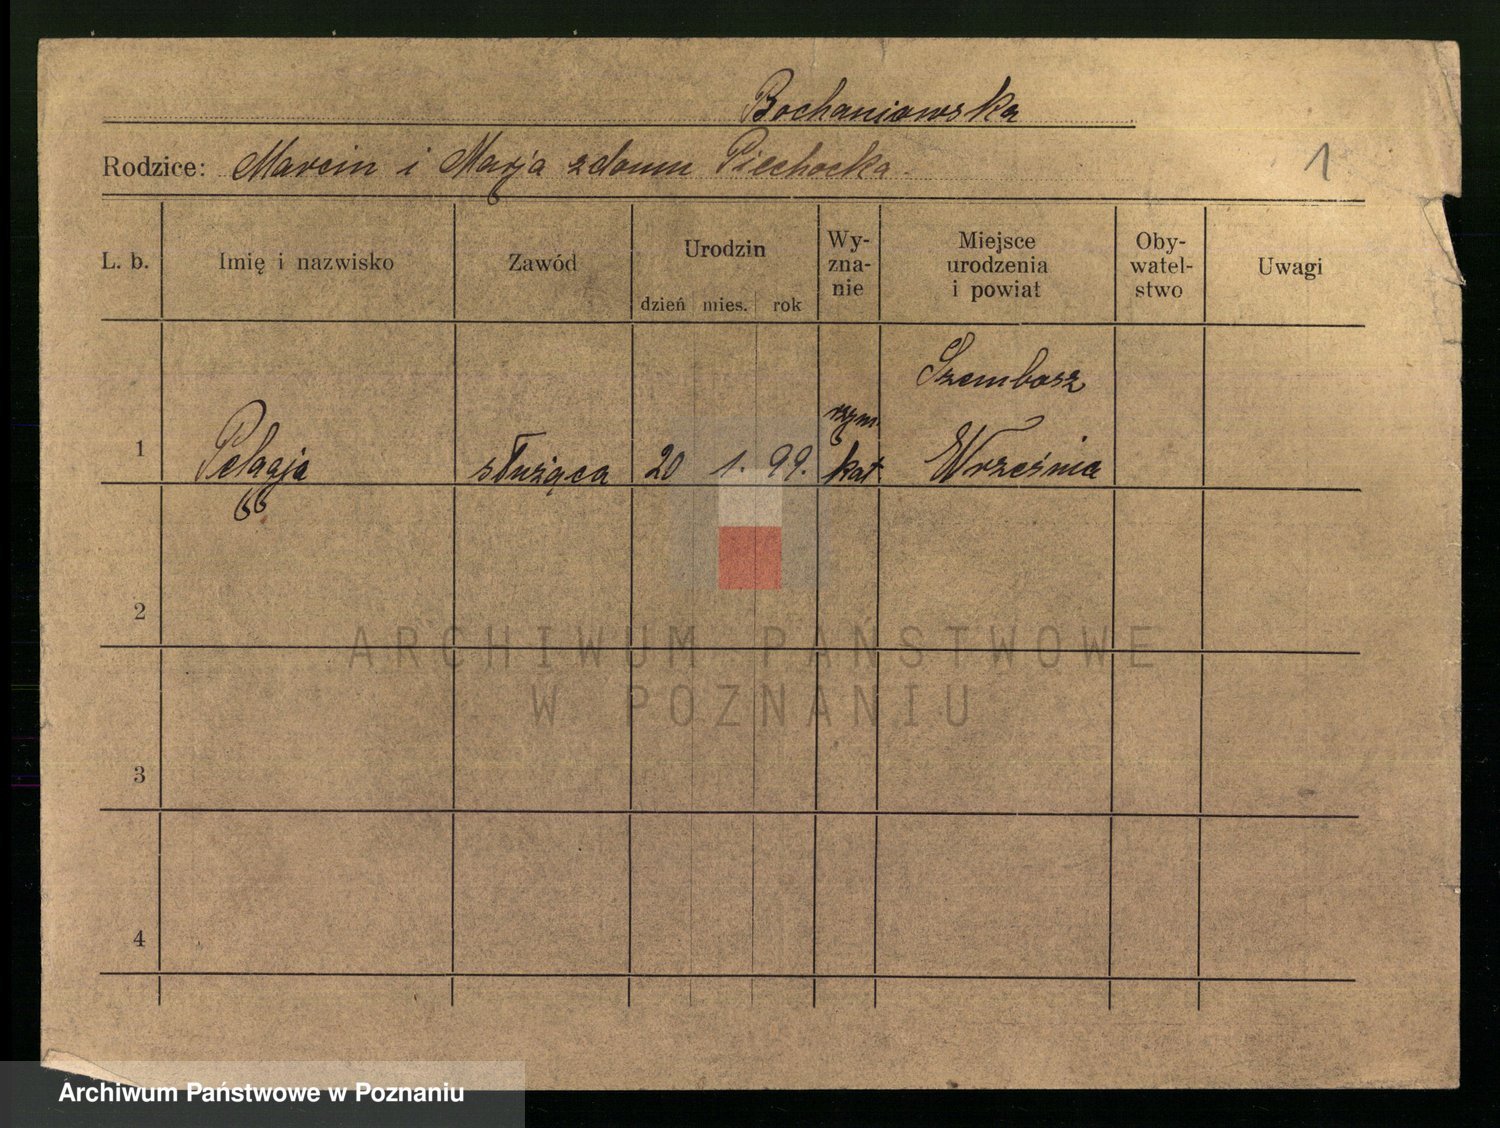 Bochaniowska
Rodzice: Marcin i Marja z domu Piechocka
1
L. b. Imię i nazwisko Zawód Urodzin dzień mies. rok Wy-zna-nie Miejsce urodzenia i powiat Oby-watel-stwo Uwagi
Szembosz
rzym.
1 Pelagja służąca 20 1. 99. kat. Września
2
ARCHIWUM PAŃSTWOWE
W POZNANIU
3
4
Archiwum Państwowe w Poznaniu